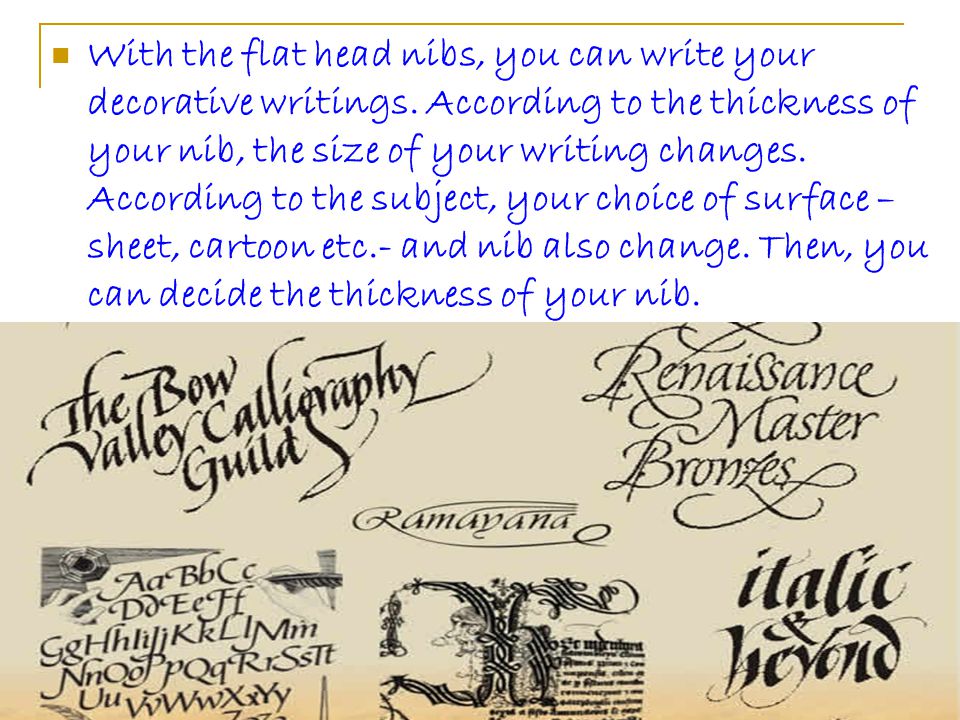 With the flat head nibs, you can write your
decorative writings. According to the thickness of
your nib, the size of your writing changes.
According to the subject, your choice of surface –
sheet, cartoon etc.- and nib also change. Then, you
can decide the thickness of your nib.
The Bow
Valley Calligraphy
Guild
Renaissance
Master
Bronzes
Ramayana
AaBbCc
DdEeFf
GgHhIiJjKkLlMm
NnOoPpQqRrSsTt
UuVvWwXxYy
italic
&
beyond